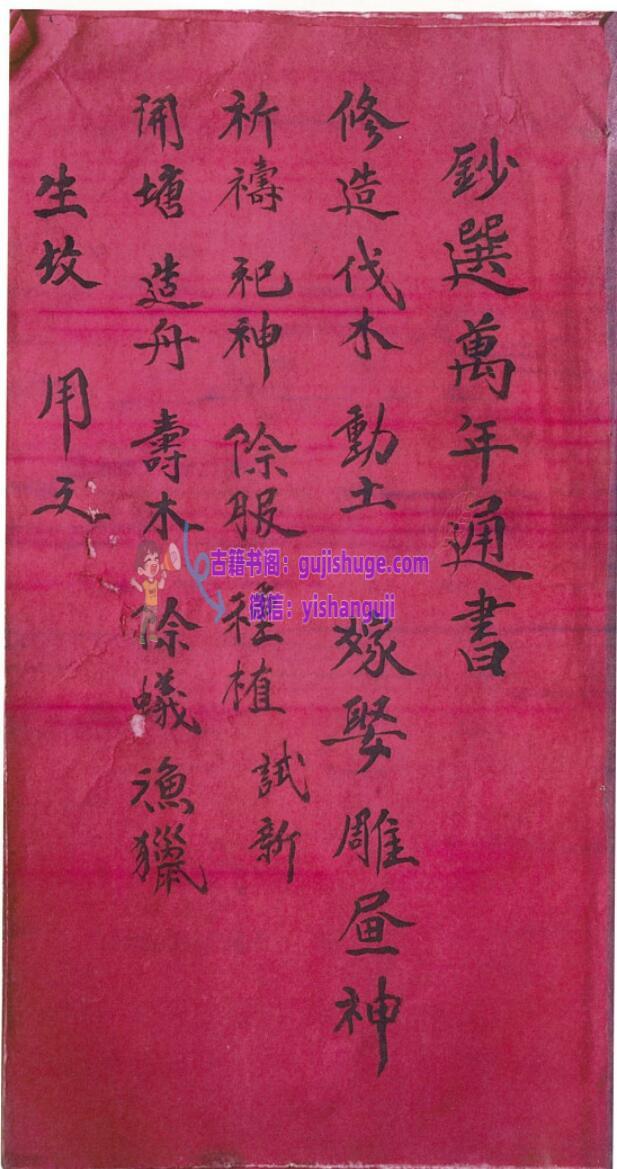 鈔選萬年通書
修造伐木 動土 嫁娶雕画神
祈禱 祀神 除服種植 試新
開塘 造舟 壽木 除蟻漁獵
生坟 用文
古籍书阁：gujishuge.com
微信：yishanguji